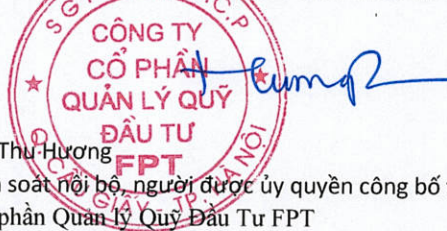 CÔNG TY
CỔ PHẦN
QUẢN LÝ QUỸ
ĐẦU TƯ
FPT
Q. CẦU GIẤY - TP. HÀ NỘI
Thu Hương
soát nội bộ, người được ủy quyền công bố
phần Quản lý Quỹ Đầu Tư FPT